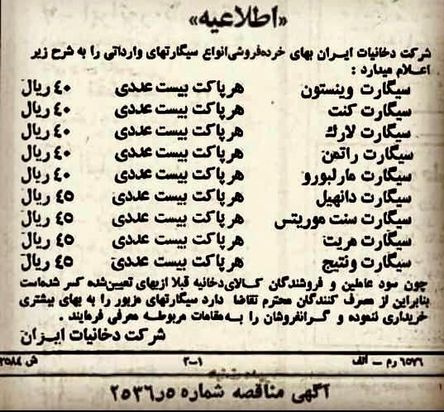 «اطلاعیه»
شرکت دخانیات ایران بهای خرده‌فروشی انواع سیگارتهای وارداتی را به شرح زیر
اعلام میدارد :
سیگارت وینستون هر پاکت بیست عددی ۴۰ ریال
سیگارت کنت هر پاکت بیست عددی ۴۰ ریال
سیگارت لارك هر پاکت بیست عددی ۴۰ ریال
سیگارت راتمن هر پاکت بیست عددی ۴۰ ریال
سیگارت مارلبورو هر پاکت بیست عددی ۴۰ ریال
سیگارت دانهیل هر پاکت بیست عددی ۴۵ ریال
سیگارت سنت موریتس هر پاکت بیست عددی ۴۵ ریال
سیگارت مریت هر پاکت بیست عددی ۴۵ ریال
سیگارت ونتیج هر پاکت بیست عددی ۴۵ ریال
چون سود عاملین و فروشندگان کالای دخانیه قبلا ازبهای تعیین‌شده کسر شده‌است
بنابراین از مصرف کنندگان محترم تقاضا دارد سیگارتهای مزبور را به بهای بیشتری
خریداری ننموده و گرانفروشان را به مقامات مربوطه معرفی فرمایند .
شرکت دخانیات ایران
۶۵۷۶ رم – الف ۲-۱ ش ۲۵۸۴
آگهی مناقصه شماره ۵ر۲۵۳۶